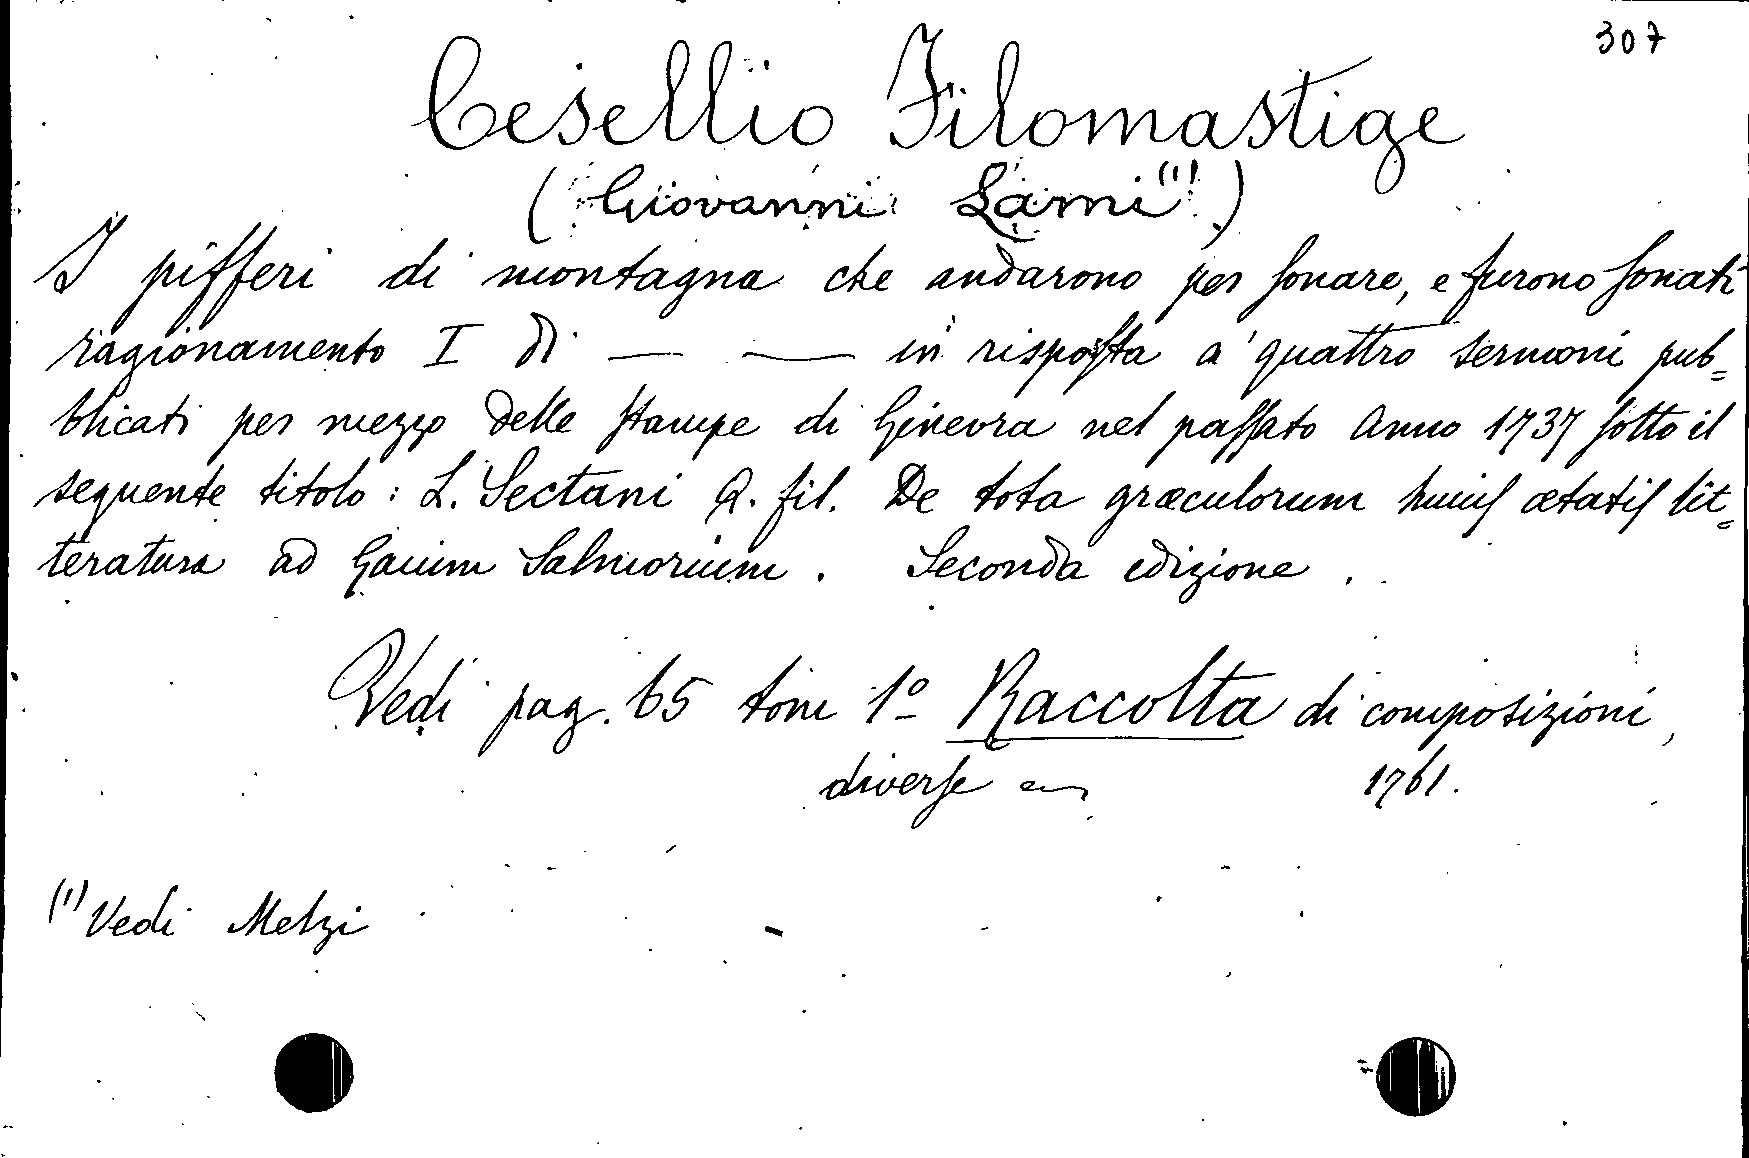 307
Cesellio Filomastige
(Giovanni Lami (1))
I pifferi di montagna che andarono per sonare, e furono sonati
ragionamento I di — — in risposta a' quattro sermoni pub=
blicati per mezzo delle stampe di Ginevra nel passato anno 1737 sotto il
seguente titolo: L. Sectani Q. fil. De tota græculorum huius ætatis lit=
teratura ad Gaium Salmorium. Seconda edizione.
Vedi pag. 65 tom 1º Raccolta di composizioni,
diverse 1761.
(1) Vedi Melzi